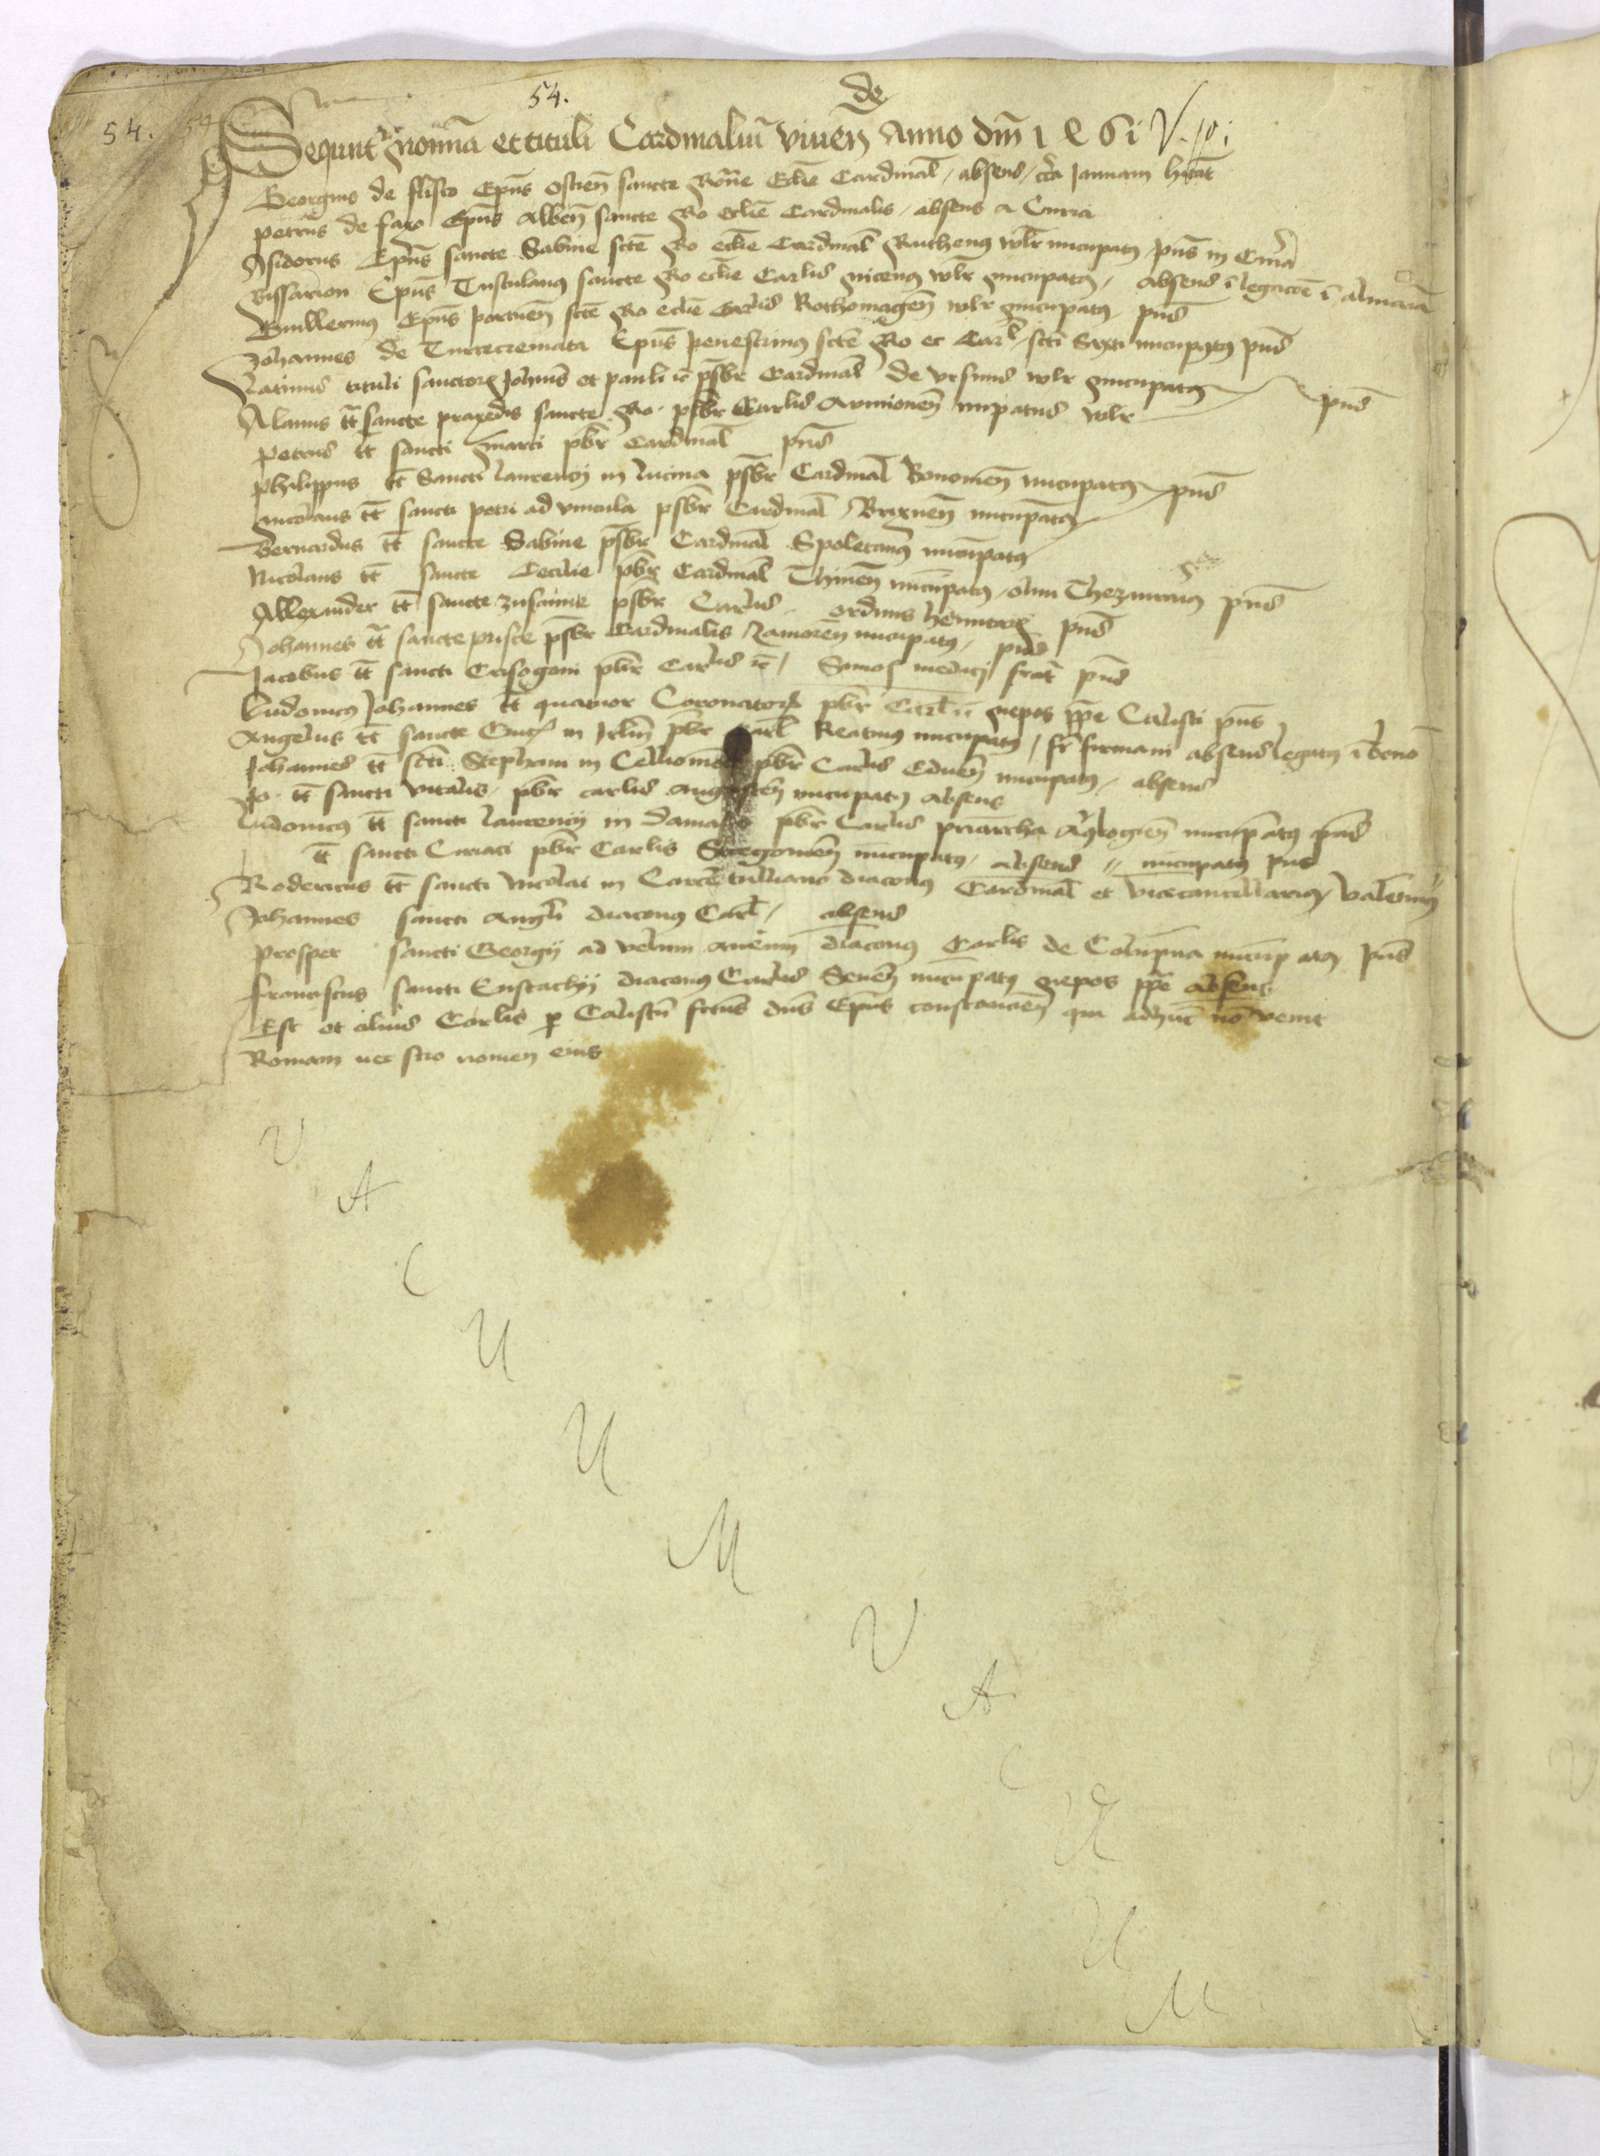 54.
de
54.
Sequnt nomina et tituli Cardinaliū viuen Anno dm̄ 1 4 6 i
Georgius de flisco Epūs ostien sancte Ro Ecclie Cardinal / absens /
petrus de faxo Epūs Alben sancte Ro ecclie Cardinalis / absens a Curia
Isidorus Epūs sancte Sabine scte Ro ecclie Cardinal Ruthenꝰ wlr nūcupatꝰ pn̄s in Curia
Bissarion Epūs Tusculanꝰ sancte Ro ecclie Carlis nicenꝰ wlr nūcupatꝰ / absens ī legacōe ī almania
Guillermꝰ Epūs portuen scte Ro ecclie Carlis Rothomagen wlr nūcupatꝰ pn̄s
Johannes de Turrecremata Epūs penestrinꝰ scte Ro ec Carl scti Sixti nūcupatꝰ pn̄s
Latinus tituli sanctorꝫ Johnis et pauli ꝛc p̄sbr Cardinal de vrsinis wlr nūcupatꝰ
Alanus tt̄ sancte praxedis sancte Ro. p̄sbr Carlis Auinionen nūpatus wlr pn̄s
Petrus tt sancti marci pbr Cardinal pn̄s
philippus tt̄ Sancti laurencij in lucina p̄sbr Cardinal Bononien nūcupatꝰ pn̄s
Nicolaus tt̄ sancti petri ad vincula p̄sbr Cardinal Brixinen nūcupatꝰ
Bernardus tt̄ sancte Sabine p̄sbr Cardinal Spoletanꝰ nūcupatꝰ
Nicolaus tt̄ sancte Cecilie pbr Cardinal Thinen nūcupatꝰ / olim Thezaurariꝰ pn̄s
Allexander tt̄ sancte zusanne p̄sbr Carlis ordinis heremitarꝫ pn̄s
Johannes tt̄ sancte prisce p̄sbr Cardinalis / Zamoren nūcupatꝰ / pn̄s
Jacobus tt̄ sancti Crisogoni pbr Carlis ꝛc / medici frat pn̄s
Ludouicꝰ Johannes tt quatuor Coronatorꝫ pbr Carl ꝛc nepos ppe Calisti pn̄s
Angelus tt̄ sancte Crucꝫ in Jrlm̄ pbr Carl Reatinꝰ nūcupatꝰ / fr firmani absens legatꝰ ī
Johannes tt scti Stephani in Celiomōte pbr Carlis Eduen nūcupatꝰ / absens
Jo. tt̄ sancti vitalis / pbr carlis Augusten nūcupatꝰ absens
Ludouicꝰ tt̄ sancti laurencij in damaso pbr Carlis priarcha Aquilogien nūcupatꝰ pn̄s
tt̄ sancti Ciriaci pbr Carlis Stregonien nūcupatꝰ / absens // nūcupatꝰ pn̄s
Rodericus tt̄ sancti nicolai in Carce tulliano diaconꝰ Cardinal et vicecancellariꝰ / valentinꝰ
Johannes sancti Angli diaconꝰ Carl / absens
Prosper sancti Georgij ad velum Aureum diaconꝰ Carlis de Columpna nūcupatꝰ pn̄s
franciscus sancti Eustachij diaconꝰ Carlis Senen nūcupatꝰ nepos ppe absens
Est et alius Carlis p Calistū fctus dn̄s Epūs constancien qui adhuc nō venit
Romam nec scio nomen eius
V
A
C
U
U
M
V
A
C
U
U
M